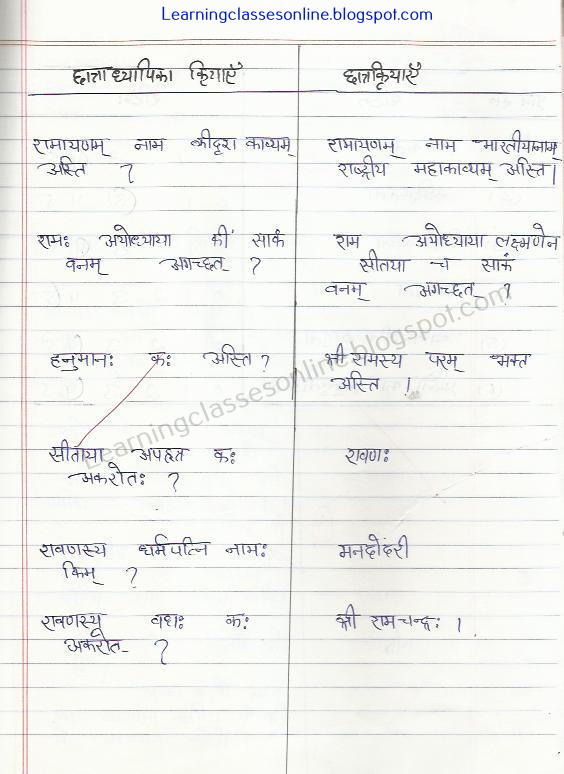 Learningclassesonline.blogspot.com
छात्राध्यापिका क्रियाएँ
छात्रक्रियाएँ
रामायणम् नाम कीदृश काव्यम्
अस्ति ?
रामायणम् नाम भारतीयानाम्
राष्ट्रीय महाकाव्यम् अस्ति।
रामः अयोध्याया कीं साकं
वनम् अगच्छत् ?
राम अयोध्याया लक्ष्मणेन
सीतया च साकं
वनम् अगच्छत् ?
हनुमानः कः अस्ति ?
श्री रामस्य परम् भक्त
अस्ति ।
Learningclassesonline.blogspot.com
सीताया अपहृत कः
अकरोतः ?
रावणः
रावणस्य धर्मपत्नि नामः
किम् ?
मनदोदरी
रावणस्य वधः कः
अकरोत् ?
श्री रामचन्द्रः ।